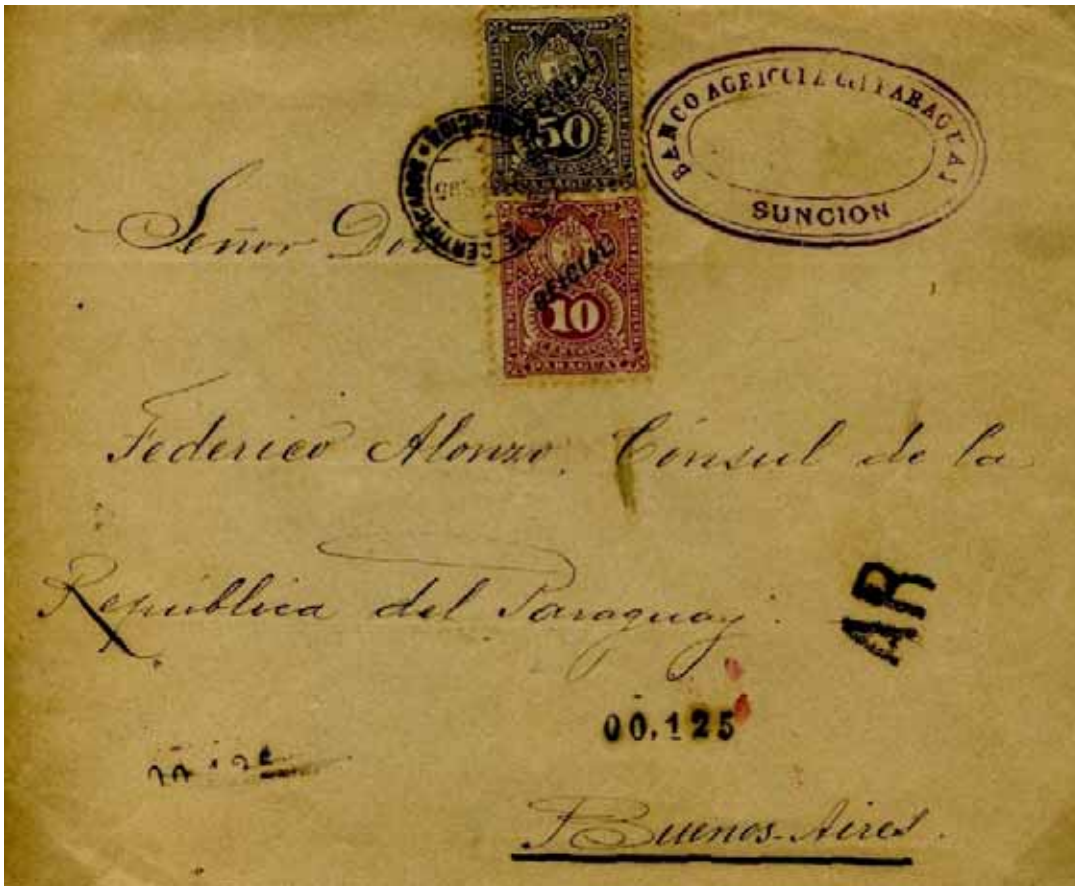 OFICIAL
50
PARAGUAY
BANCO AGRICOLA del PARAGUAY
SUNCION
CERTIFICADOS
Señor Don
OFICIAL
10
CENTAVOS
PARAGUAY
Federico Alonzo, Cónsul de la
República del Paraguay.
AR
00.125
Buenos-Aires.